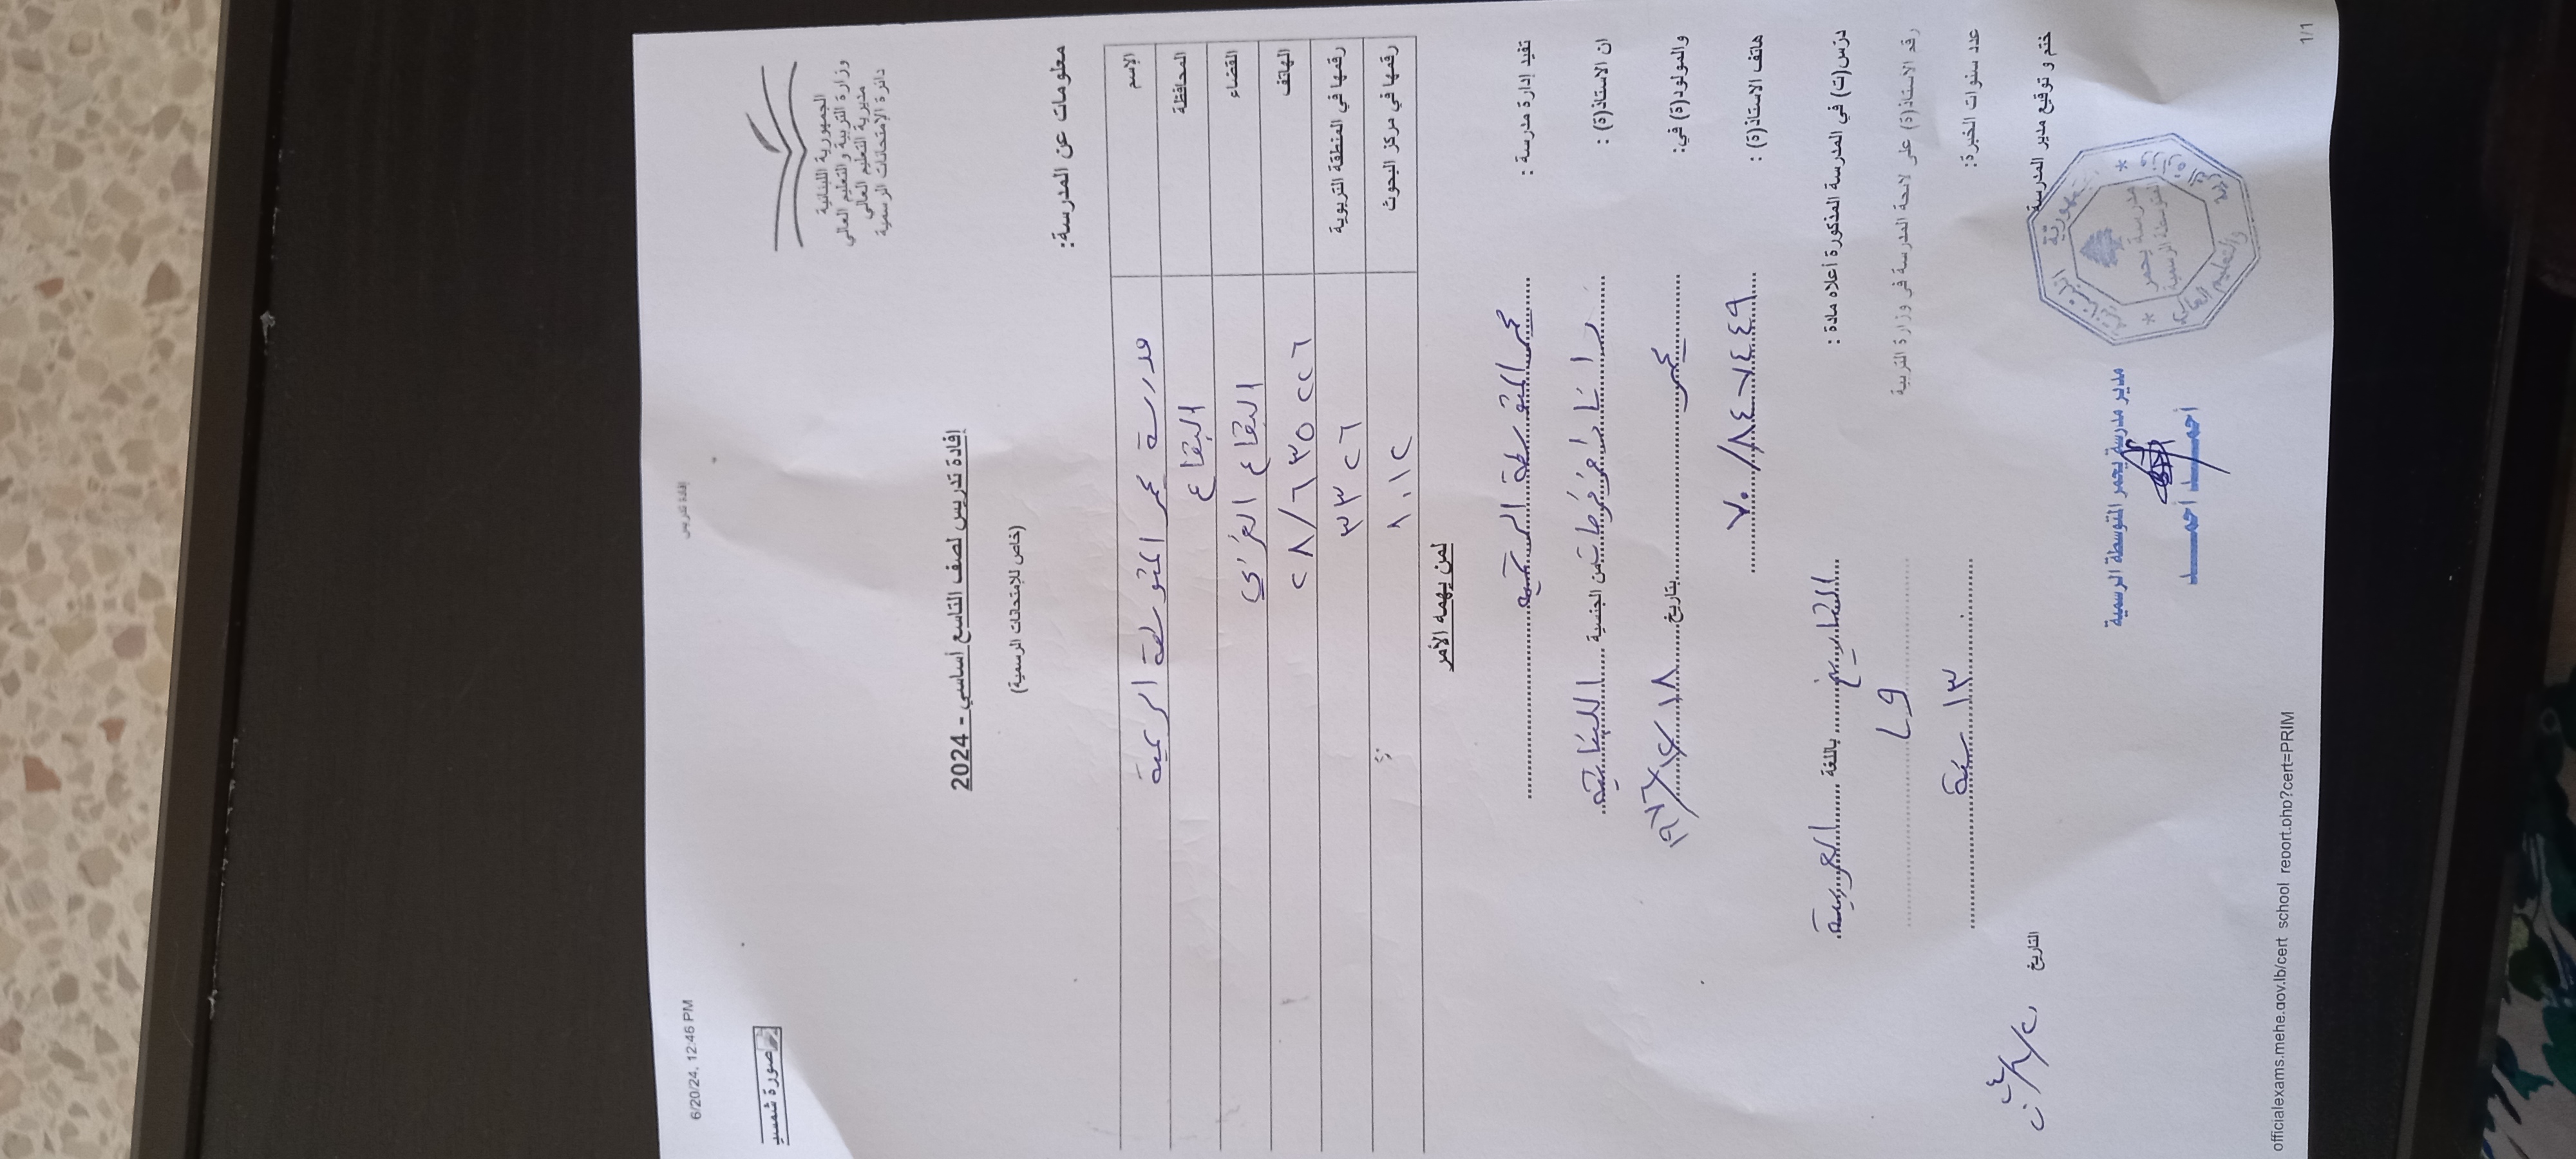 6/20/24, 12:46 PM
إفادة تدريس
الجمهورية اللبنانية
وزارة التربية والتعليم العالي
مديرية التعليم العالي
دائرة الإمتحانات الرسمية
صورة شمسية
إفادة تدريس لصف التاسع أساسي - 2024
(خاص للإمتحانات الرسمية)
معلومات عن المدرسة:
الإسم مدرسة يحمر المتوسطة الرسمية
المحافظة البقاع
القضاء البقاع الغربي
الهاتف ٠٨/٦٣٥٢٢٦
رقمها في المنطقة التربوية ٣٣٢٦
رقمها في مركز البحوث ١٠١٢
لمن يهمه الأمر
تفيد إدارة مدرسة : يحمر المتوسطة الرسمية
ان الاستاذ(ة) : رانيا من الجنسية اللبنانية
والمولود(ة) في: يحمر بتاريخ
هاتف الاستاذ(ة) : ٧٠/٨٤٧٤٤٩
درّس(ت) في المدرسة المذكورة أعلاه مادة : التاريخ باللغة العربية
رقم الاستاذ(ة) على لائحة المدرسة في وزارة التربية
عدد سنوات الخبرة: ١٣ سنة
ختم و توقيع مدير المدرسة التاريخ
الجمهورية اللبنانية
مدرسة يحمر
المتوسطة الرسمية
مدير مدرسة يحمر المتوسطة الرسمية
أحمد أحمد
officialexams.mehe.gov.lb/cert_school_report.php?cert=PRIM
1/1